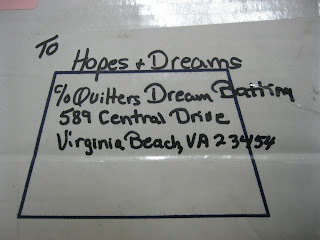 To
Hopes + Dreams
c/o Quilters Dream Batting
589 Central Drive
Virginia Beach, VA 23454